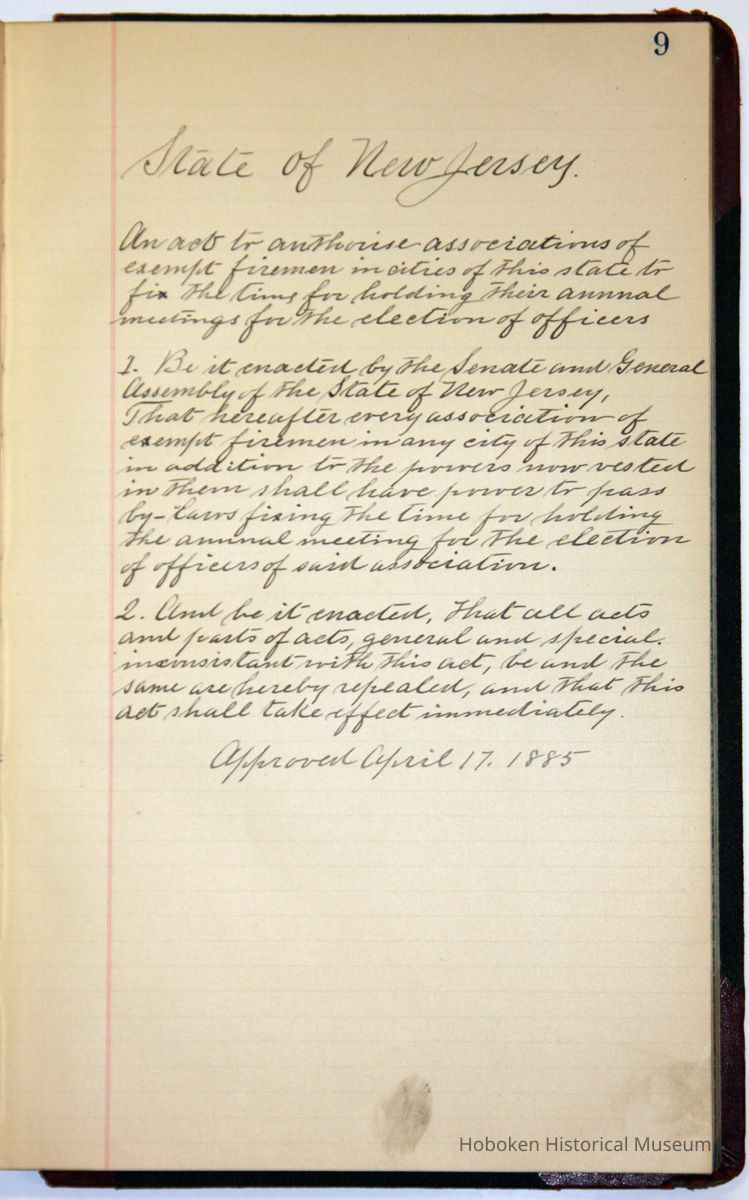 9
State of New Jersey.
An act to authorise associations of
exempt firemen in cities of this state to
fix the time for holding their annual
meetings for the election of officers
1. Be it enacted by the Senate and General
Assembly of the State of New Jersey,
That hereafter every association of
exempt firemen in any city of this state
in addition to the powers now vested
in them shall have power to pass
by-laws fixing the time for holding
the annual meeting for the election
of officers of said association.
2. And be it enacted, that all acts
and parts of acts, general and special.
inconsistant with this act, be and the
same are hereby repealed, and that this
act shall take effect immediately.
Approved April 17. 1885
Hoboken Historical Museum